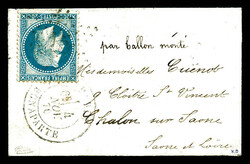 par ballon monté
Mesdemoiselles Cuénot
9 Cloître St Vincent
Chalon sur Saône
Saône et Loire
BONAPARTE